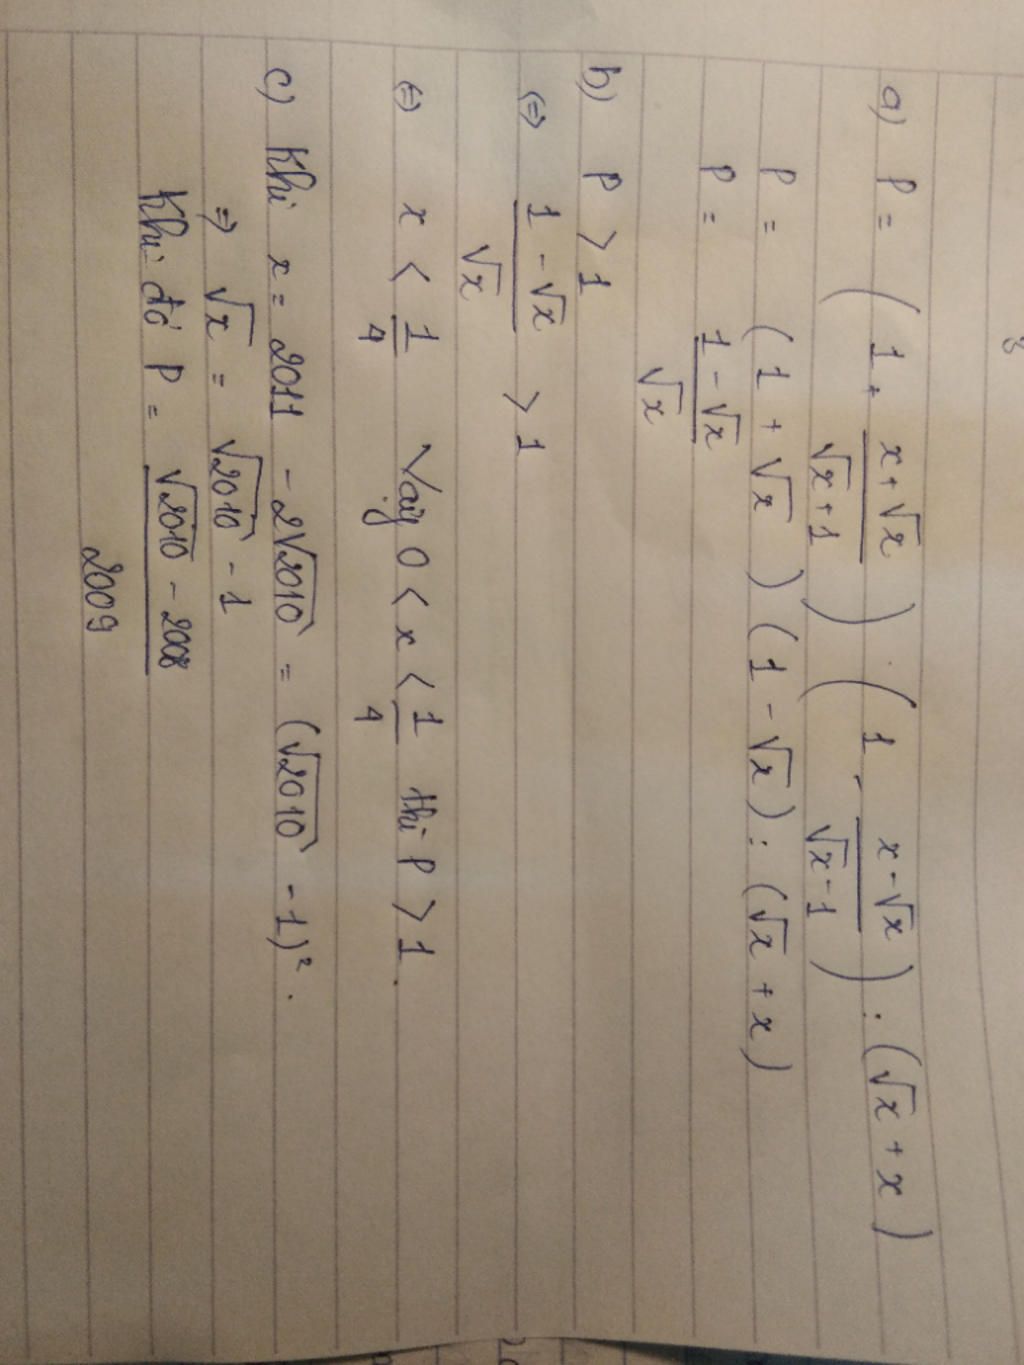 a) P = ( 1 + \frac{x + \sqrt{x}}{\sqrt{x} + 1} ) . ( 1 - \frac{x - \sqrt{x}}{\sqrt{x} - 1} ) : (\sqrt{x} + x)
P = ( 1 + \sqrt{x} ) ( 1 - \sqrt{x} ) : (\sqrt{x} + x)
P = \frac{1 - \sqrt{x}}{\sqrt{x}}
b) P > 1
(=) \frac{1 - \sqrt{x}}{\sqrt{x}} > 1
(=) x < \frac{1}{4} Vậy 0 < x < \frac{1}{4} thì P > 1.
c) Khi x = 2011 - 2\sqrt{2010} = (\sqrt{2010} - 1)².
=) \sqrt{x} = \sqrt{2010} - 1
Khi đó P = \frac{\sqrt{2010} - 2008}{2009}